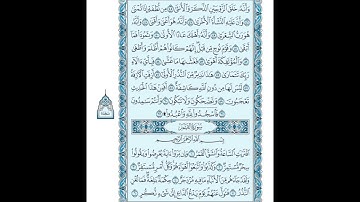 وَأَنَّهُۥ خَلَقَ ٱلزَّوْجَيْنِ ٱلذَّكَرَ وَٱلْأُنثَىٰ مِن نُّطْفَةٍ إِذَا تُمْنَىٰ
وَأَنَّ عَلَيْهِ ٱلنَّشْأَةَ ٱلْأُخْرَىٰ وَأَنَّهُۥ هُوَ أَغْنَىٰ وَأَقْنَىٰ وَأَنَّهُۥ
هُوَ رَبُّ ٱلشِّعْرَىٰ وَأَنَّهُۥٓ أَهْلَكَ عَادًا ٱلْأُولَىٰ وَثَمُودَا۟ فَمَآ
أَبْقَىٰ وَقَوْمَ نُوحٍ مِّن قَبْلُ إِنَّهُمْ كَانُوا۟ هُمْ أَظْلَمَ وَأَطْغَىٰ
وَٱلْمُؤْتَفِكَةَ أَهْوَىٰ فَغَشَّىٰهَا مَا غَشَّىٰ فَبِأَىِّ ءَالَآءِ
رَبِّكَ تَتَمَارَىٰ هَٰذَا نَذِيرٌ مِّنَ ٱلنُّذُرِ ٱلْأُولَىٰٓ أَزِفَتِ ٱلْءَازِفَةُ
لَيْسَ لَهَا مِن دُونِ ٱللَّهِ كَاشِفَةٌ أَفَمِنْ هَٰذَا ٱلْحَدِيثِ
تَعْجَبُونَ وَتَضْحَكُونَ وَلَا تَبْكُونَ وَأَنتُمْ سَٰمِدُونَ
فَٱسْجُدُوا۟ لِلَّهِ وَٱعْبُدُوا۟ ۩
سُورَةُ القَمَرِ
بِسْمِ ٱللَّهِ ٱلرَّحْمَٰنِ ٱلرَّحِيمِ
ٱقْتَرَبَتِ ٱلسَّاعَةُ وَٱنشَقَّ ٱلْقَمَرُ وَإِن يَرَوْا۟ ءَايَةً يُعْرِضُوا۟ وَيَقُولُوا۟
سِحْرٌ مُّسْتَمِرٌّ وَكَذَّبُوا۟ وَٱتَّبَعُوٓا۟ أَهْوَآءَهُمْ وَكُلُّ أَمْرٍ مُّسْتَقِرٌّ
وَلَقَدْ جَآءَهُم مِّنَ ٱلْأَنۢبَآءِ مَا فِيهِ مُزْدَجَرٌ حِكْمَةٌۢ بَٰلِغَةٌ فَمَا تُغْنِ
ٱلنُّذُرُ فَتَوَلَّ عَنْهُمْ يَوْمَ يَدْعُ ٱلدَّاعِ إِلَىٰ شَىْءٍ نُّكُرٍ